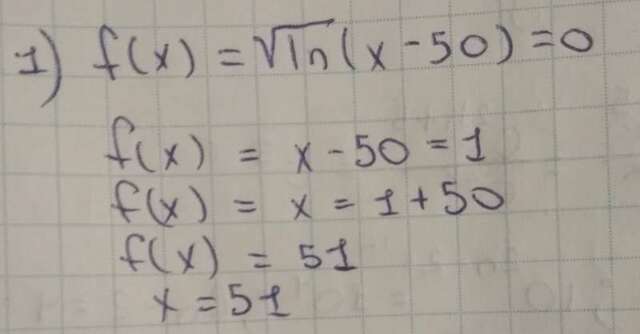 1) f(x) = √ln(x-50) = 0
f(x) = x - 50 = 1
f(x) = x = 1 + 50
f(x) = 51
x = 51